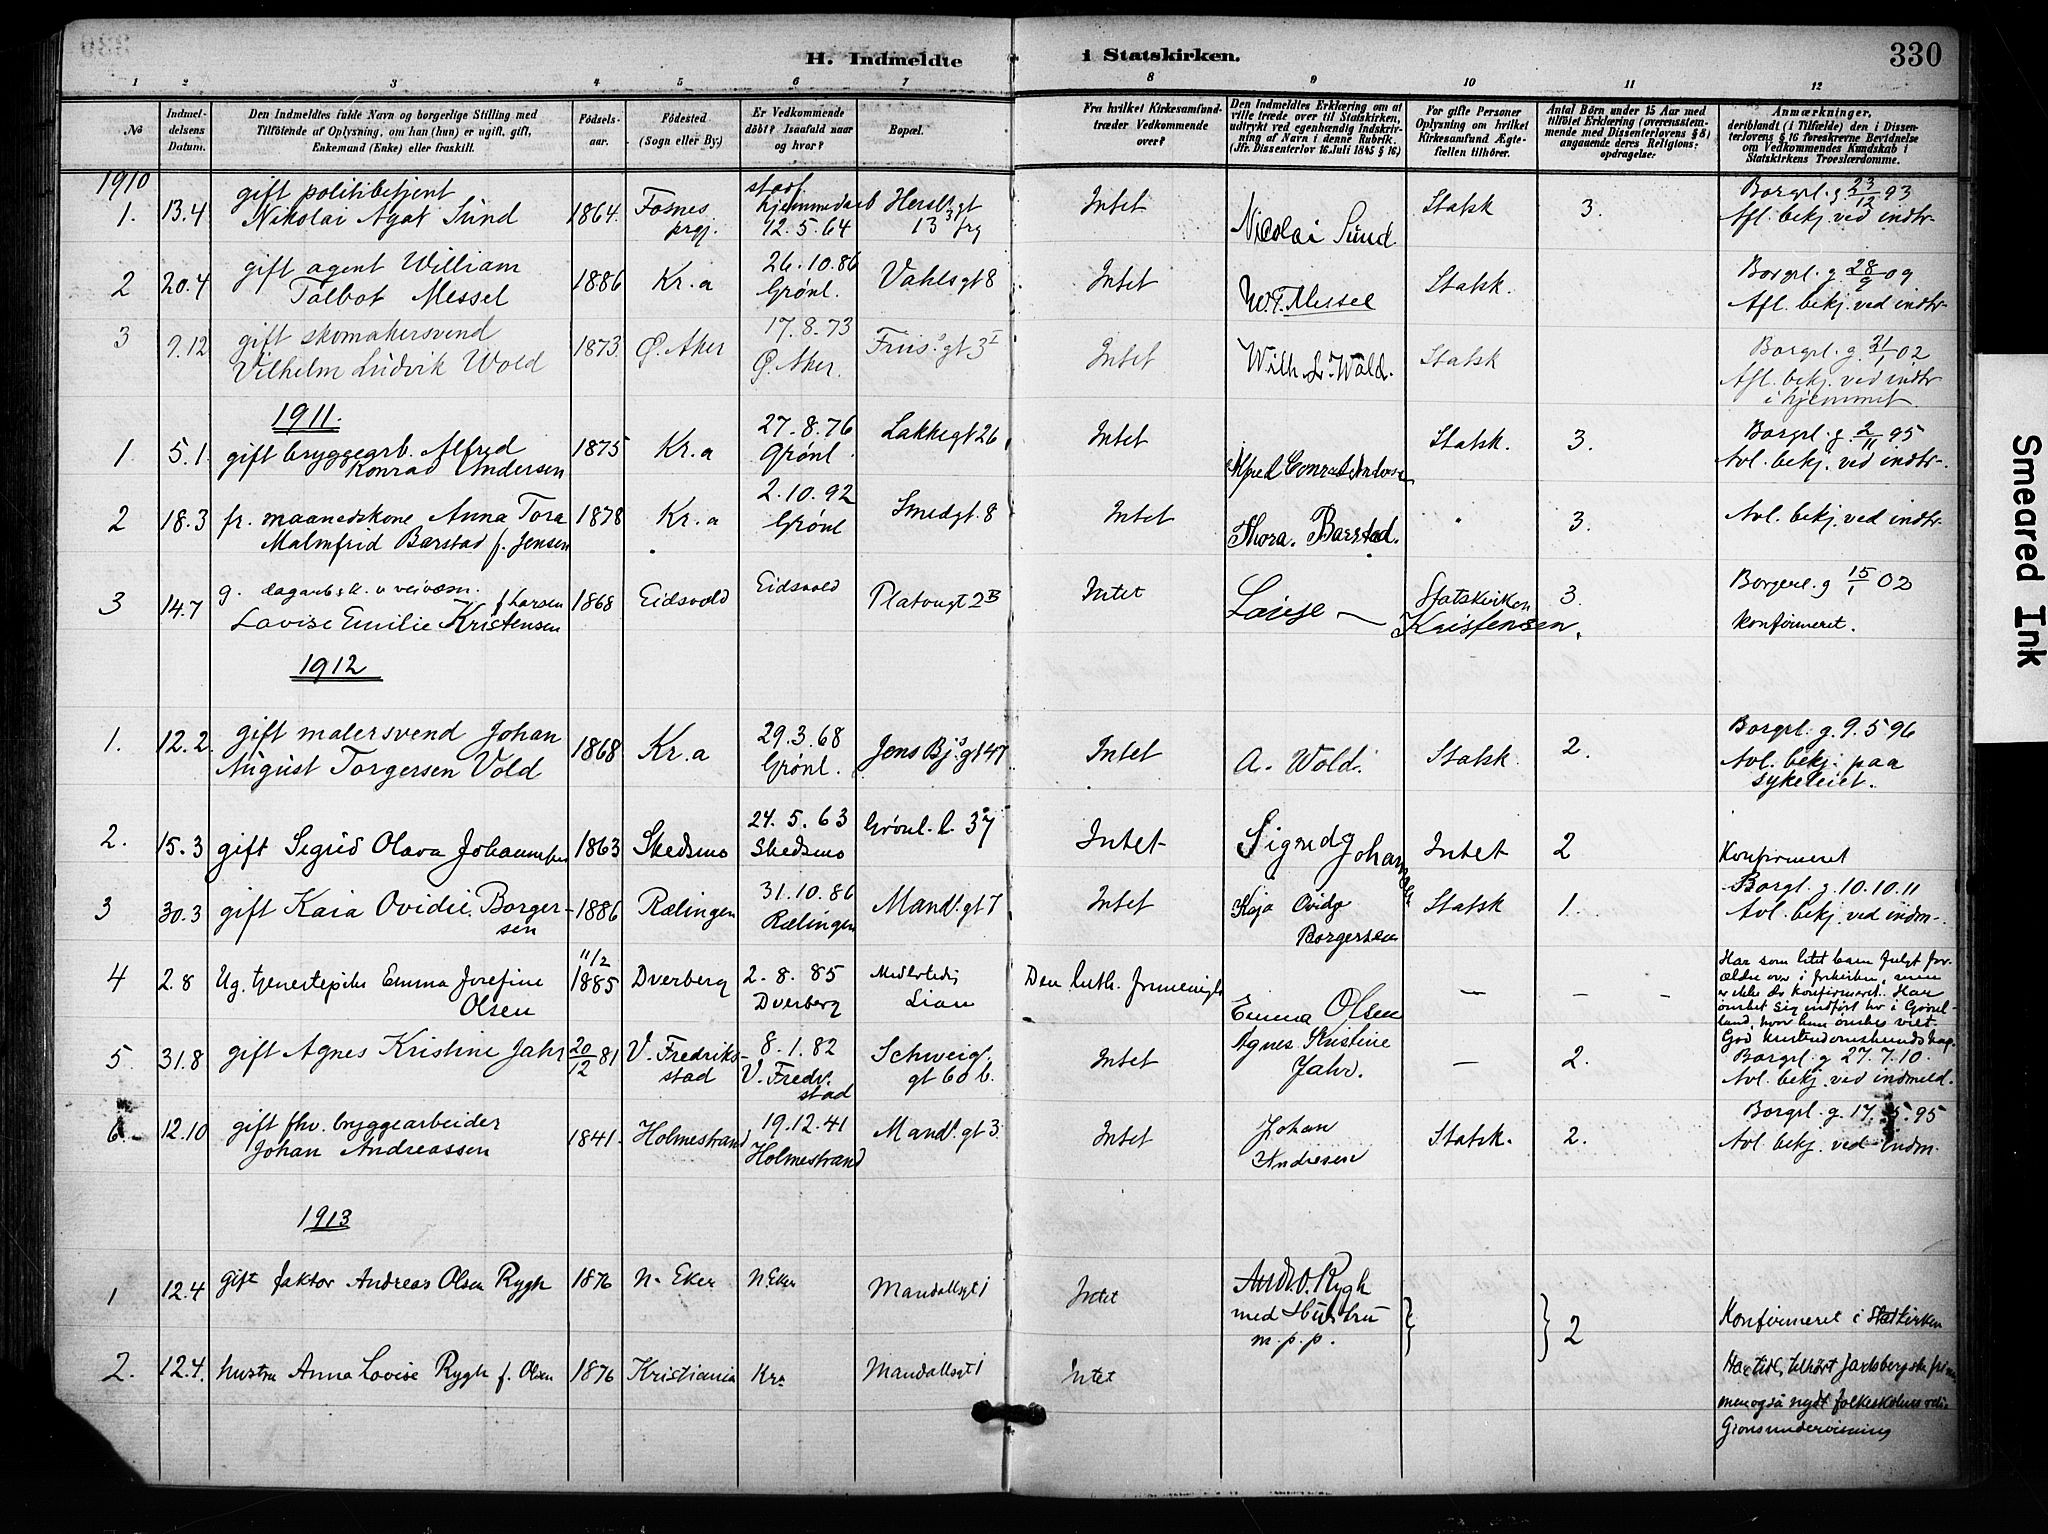 H. Indmeldte i Statskirken. 330
1 2 3 4 5 6 7 8 9 10 11 12
No
Indmeldelsens Datum.
Den Indmeldtes fulde Navn og borgerlige Stilling med
Tilföiende af Oplysning, om han (hun) er ugift, gift,
Enkemand (Enke) eller fraskilt.
Födselsaar.
Födested
(Sogn eller By.)
Er Vedkommende
döbt? Isaafald naar
og hvor?
Bopæl.
Fra hvilket Kirkesamfund
træder Vedkommende
over?
Den Indmeldtes Erklæring om at
ville træde over til Statskirken,
udtrykt ved egenhændig Indskrivning af Navn i denne Rubrik.
(Jfr. Dissenterlov 16. Juli 1845 § 16)
For gifte Personer
Oplysning om hvilket
Kirkesamfund Ægtefællen tilhörer.
Antal Börn under 15 Aar med
tilföiet Erklæring (overensstemmende med Dissenterlovens § 8)
angaaende deres Religionsopdragelse.
Anmærkninger,
deriblandt (i Tilfælde) den i Dissenterlovens § 16 foreskrevne Bevidnelse
om Vedkommendes Kundskab i
Statskirkens Troeslærdomme.
1910
1. 13.4 gift politibetjent Nikolai Agat Sund 1864. Fosnes prgj. stadf. hjemmedaab 12.5.64 Herslbs gt 13 Intet Nicolai Sund Statsk 3. Borgrl. g 23/12 93 Afl. bekj. ved indtr-
2 20.4 gift agent William Talbot Messel 1886 Kr.a 26.10.86 Grønl. Vahlsgt 8 Intet W.T. Messel Statsk. Borgrl. g. 28/9 09 Afl. bekj. ved indtr-
3 7.12 gift skomakersvend Vilhelm Ludvik Wold 1873. Ø. Aker 17.8.73 Ø. Aker. Friis's gt 3 I Intet Wilh. L. Wold. Statsk Borgrl. g. 31/1 02 Afl. bekj. ved indtr i hjemmet.
1911.
1 5.1. gift bryggearb. Alfred Konrad Andersen 1875 Kr.a 27.8.76 Grønl. Lakkegt 26 Intet Alfred Conrad Andersen Statsk. 3. Borgrl. g 2/11 95 Avl. bekj. ved indtr-.
2 18.3 fr. maanedskone Anna Tora Malmfrid Barstad f. Jensen 1878 Kr.a 2.10.92 Grønl Smedgt. 8 Intet Thora. Barstad. " 3. Avl. bekj. ved indtr-
3 14.7 g. f Larsen Lovise Emilie Kristensen 1868 Eidsvold Eidsvold Platougt 2B Intet Lovise — Kristensen. Statskirken 3. Borgerl. g 15/1 02 konfirmeret.
1912
1. 12.2. gift malersvend Johan August Torgersen Vold 1868 Kr.a 29.3.68 Grønl. Jens Bj.s gt 47 Intet A. Wold. Statsk. 2. Borgrl. g. 9.5 96 Avl. bekj. paa sykeleiet.
2. 15.3 gift Sigrid Olava Johannesen 1863 Skedsmo 24.5.63 Skedsmo Grønl. l. 37 Intet Sigrid Johannesen Intet 2 Konfirmeret
3 30.3 gift Kaia Ovidie Borgersen 1886 Rælingen 31.10.86 Rælingen Mandl. gt 7 Intet Kaja Ovidja Borgersen Statsk 1. Borgl. g. 10.10.11 Avl. bekj. ved indm-.
4 2.8 Ug. tjenestepike Emma Josefine Olsen 11/2 1885 Dverberg 2.8.85 Dverberg Lian Den luth. frimenigh. Emma Olsen — — — Har som litet barn fulgt forældre over i frikirken, men er ikke der konfirmeret. Har ønsket sig indført her i Grønland, hvor hun ønskes viet. God kristendomskundskap.
5. 31.8 gift Agnes Kristine Jahr 20/12 81 V. Fredrikstad 8.1.82 V. Fredr. stad Schweig. gt 60 b. Intet Agnes Kristine Jahr. — 2. Borgrl. g 27.7.10. Avl. bekj. ved indmeld.
6. 12.10 gift fhv. bryggearbeider Johan Andreassen 1841. Holmestrand 19.12.41 Holmestrand Mandl. gt 3. Intet Johan Andresen Statsk. 2. Borgrl. g. 17.5.95 Avl bekj. ved indm.
1913
1 12.4 gift faktor Andreas Olsen Rygh 1876 N. Eker N. Eker Mandallsgt 1 Intet Andr. O. Rygh med Hustru m.p.p. } } 2 Konfirmeret i Statskirken
2. 12.4. hustru Anna Lovise Rygh f. Olsen 1876 Kristiania Kra Mandallsgt 1 Intet Har tidl. tilhørt Jarlsbergske men også nydt folkeskolens religionsundervisning
Smeared Ink